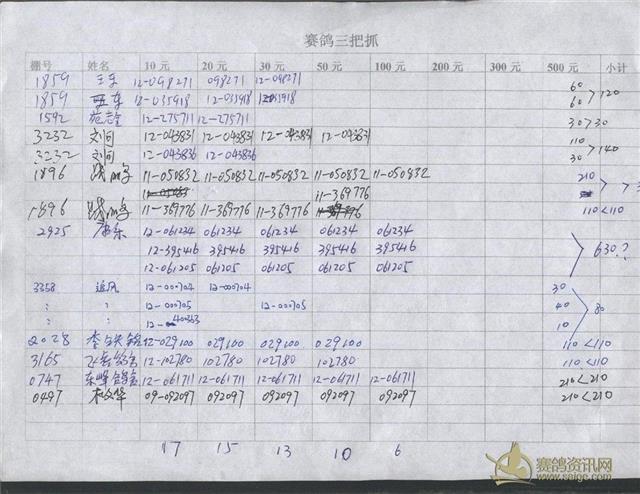 赛鸽三把抓
棚号 姓名 10 元 20 元 30 元 50 元 100 元 200 元 300 元 500 元 小计
1859 王东 12-098271 098271 12-098271 60
1859 王东 12-035918 12-035918 12-035918 60 >120
1592 12-275711 12-275711 30>30
3232 刘间 12-043831 12-043831 12-043831 12-043831 110
3232 刘间 12-043836 12-043836 30 >140
1896 11-050832 11-050832 11-050832 11-050832 11-050832 210
11-369776
1896 11-369776 11-369776 11-369776 110 <110
2925 康东 12-061234 061234 061234 061234 061234
12-395416 395416 395416 395416 395416 630.?
12-061205 061205 061205 061205 061205
3358 追风 12-000704 12-000704 30
" " 12-000705 12-000705 40 >80
" " 10
2028 12-029100 029100 029100 029100 110 <110
3165 12-102780 102780 102780 102780 110<110
0747 东峰鸽舍 12-061711 12-061711 12-061711 12-061711 12-061711 210<210
0497 09-092097 092097 092097 092097 092097 210<210
17 15 13 10 6
赛鸽资讯网
www.saige.com